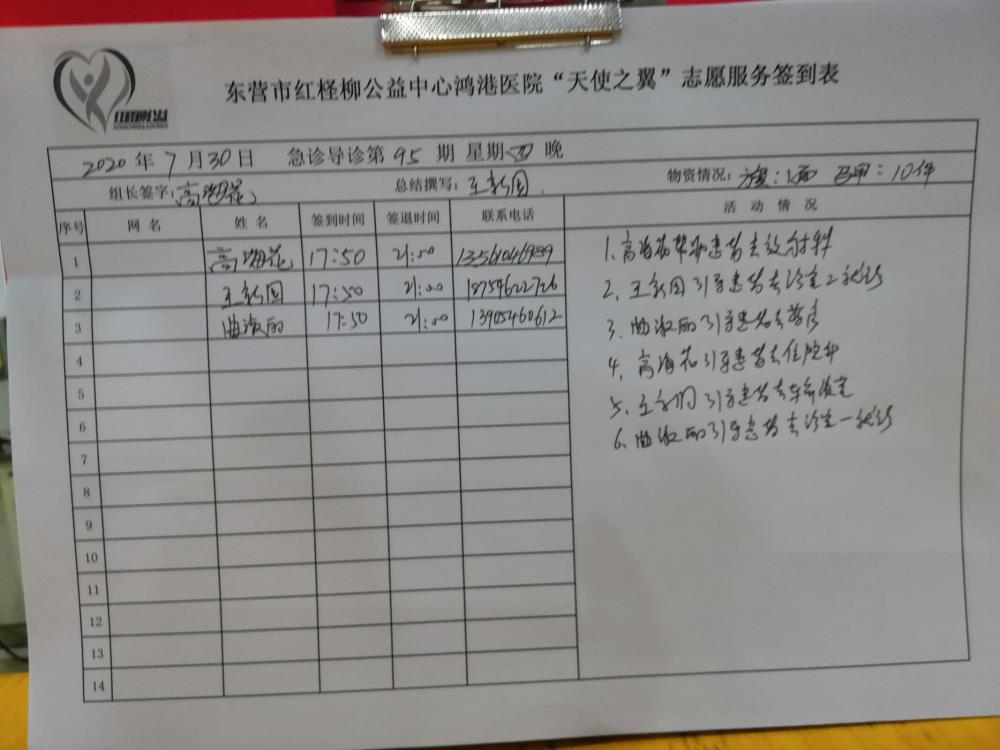 东营市红柽柳公益中心鸿港医院“天使之翼”志愿服务签到表
2020年7月30日 急诊导诊第95期 星期四晚
组长签字：高海花 总结撰写：王新国 物资情况：旗：1面 马甲：10件
序号 网名 姓名 签到时间 签退时间 联系电话 活动情况
1 高海花 17:50 21:00 13561046989
2 王新国 17:50 21:00 18754622726
3 曲淑丽 17:50 21:00 13905460612
4
5
6
7
8
9
10
11
12
13
14
1、高海花帮助患者去放射科
2、王新国引导患者去诊室二就诊
3、曲淑丽引导患者去药房
4、高海花引导患者去住院部
5、引导患者去
6、曲淑丽引导患者去诊室一就诊